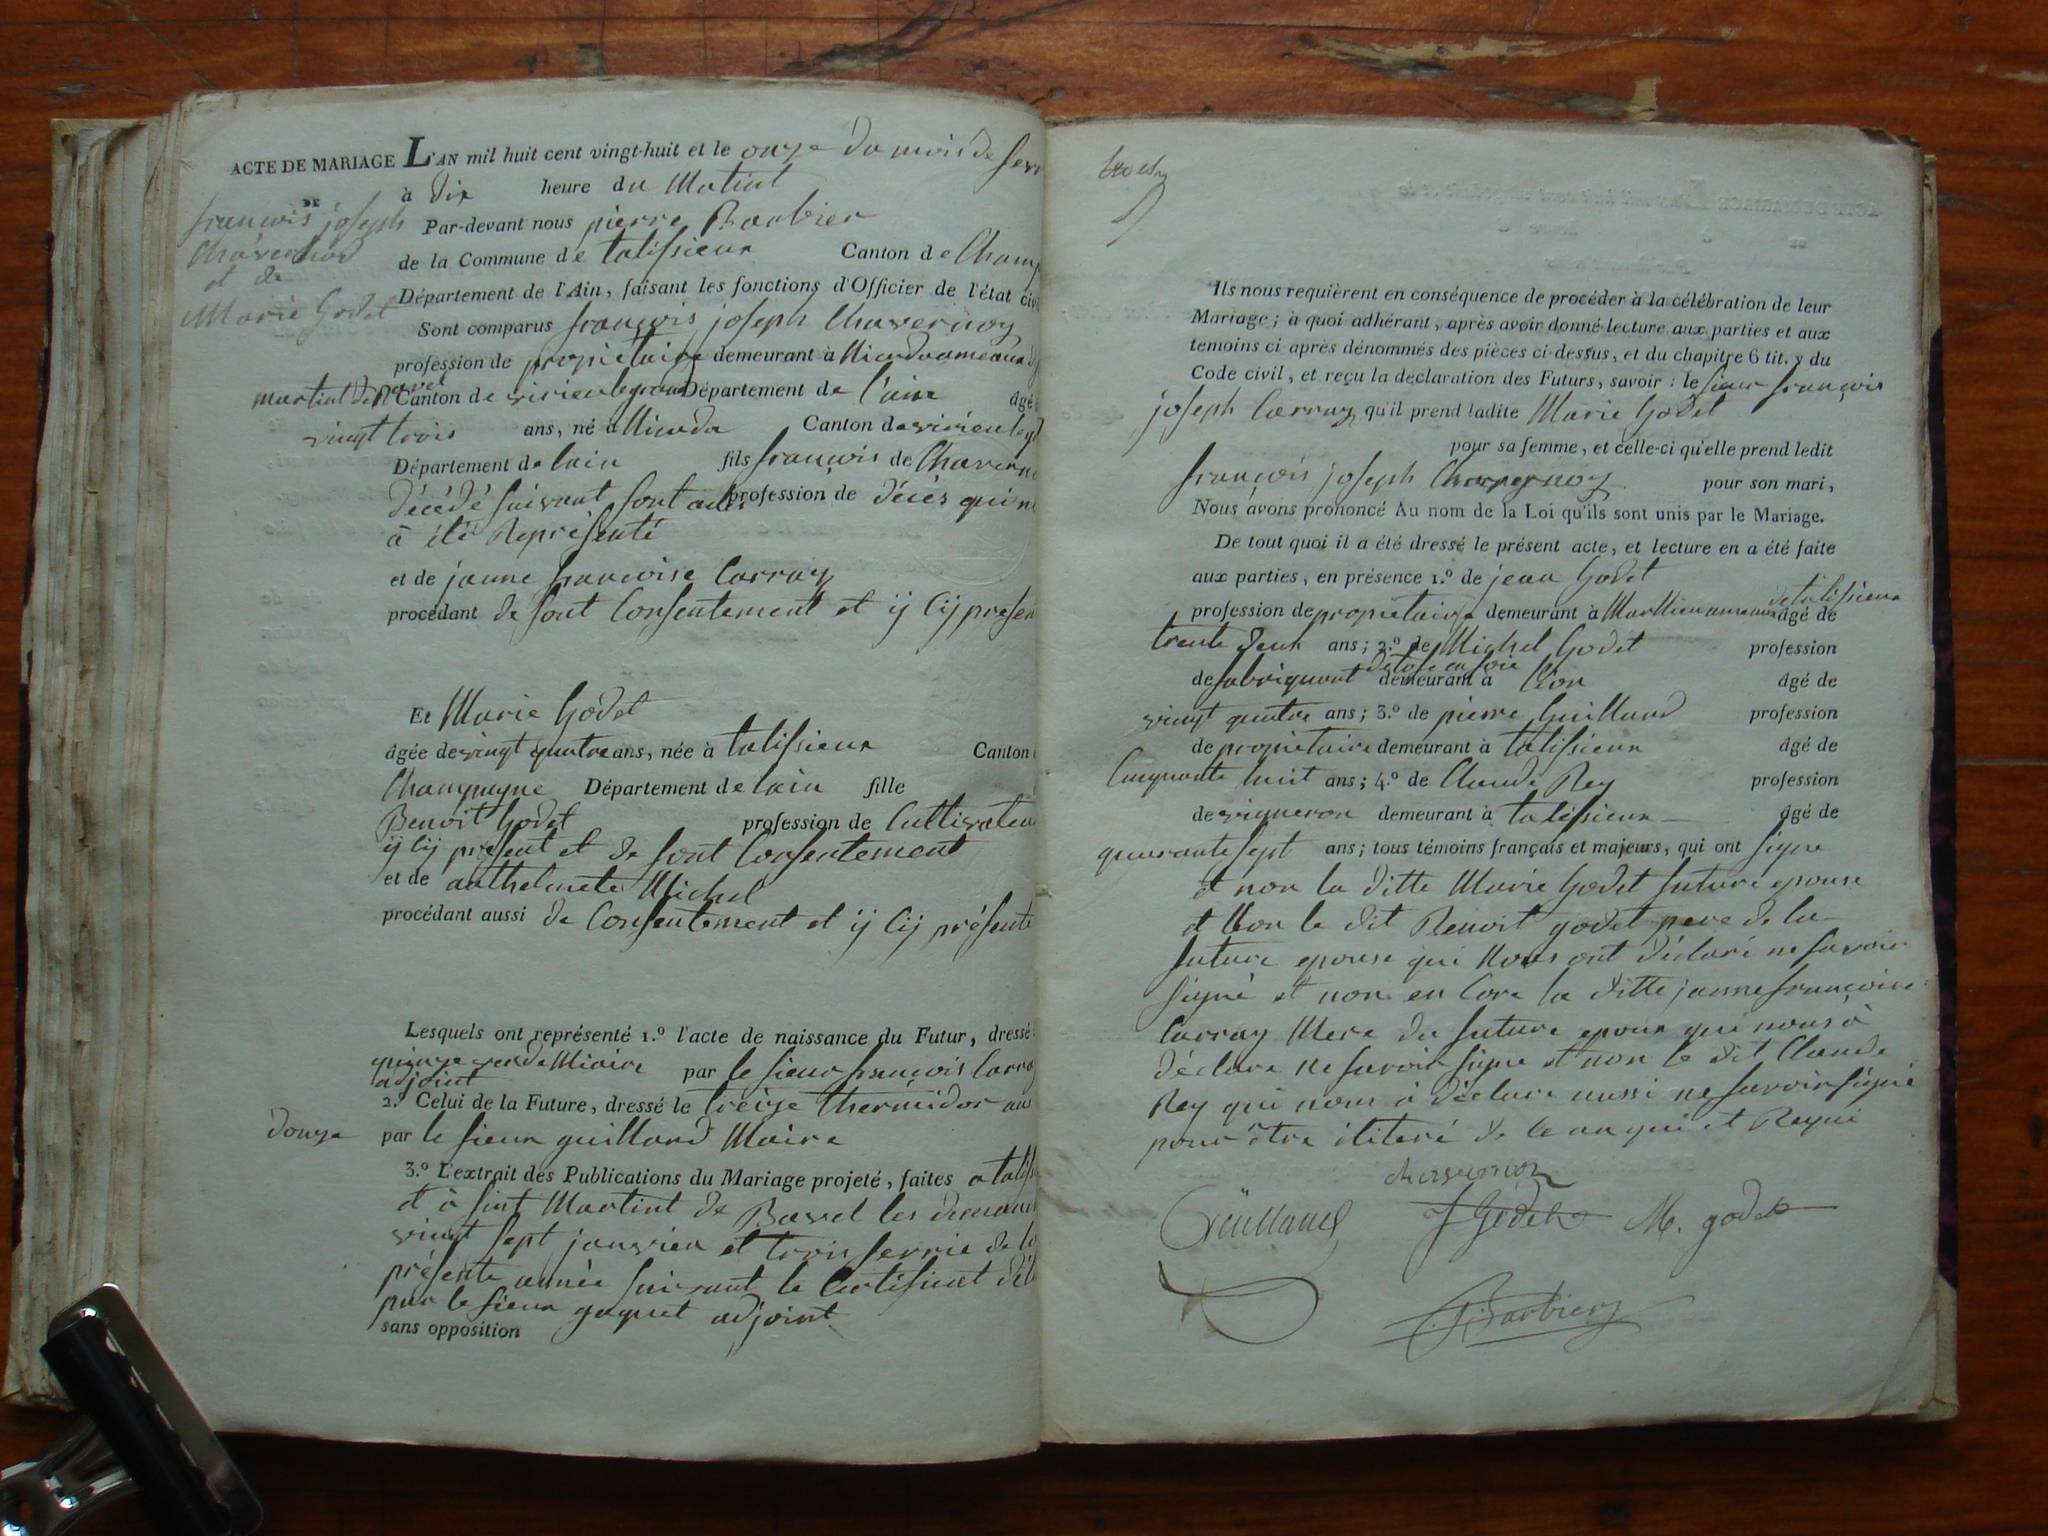 ACTE DE MARIAGE L'AN mil huit cent vingt-huit et le onze du mois de fevr
DE
à dix heure du Matint
françois joseph
Chavernod
et de
Marie Godet
Par-devant nous pierre Barbier
de la Commune de talissieux Canton de Champ
Département de l'Ain, faisant les fonctions d'Officier de l'état civ
Sont comparus françois joseph Chavernoz
profession de propriétaire demeurant à
martint de Bavel Canton de virieu le grand Département de l'ain âgé
vingt trois ans, né à Canton de virieu le g
Département de lain fils françois de Chavern
décédé suivant sont acte profession de décès qui n
à été Représenté
et de janne francoise Carraz
procédant de sont Consentement et ij Cij presen
Et Marie Godet
âgée de vingt quatre ans, née à talissieux Canton
Champagne Département de lain fille
Benoit Godet profession de Cultivateu
ij Cij présent et de sont Consentement
et de anthelmete Michel
procédant aussi de Consentement et ij Cij présente
Lesquels ont représenté 1.º l'acte de naissance du Futur, dressé
quinze par le sieur françois Carra
adjoint
2.º Celui de la Future, dressé le treize thermidor an
douze par le sieur guillard Maire
3.º L'extrait des Publications du Mariage projeté, faites a talis
et à sint Martint de Bavel les dimanch
vingt sept janvier et trois fevrie de la
présente année suivant le Certificat dél
par le sieur goquet adjoint
sans opposition
Ils nous requièrent en conséquence de procéder à la célébration de leur
Mariage; à quoi adhérant, après avoir donné lecture aux parties et aux
temoins ci après dénommés des pièces ci-dessus, et du chapitre 6 tit. y du
Code civil, et reçu la déclaration des Futurs, savoir : le sieur françois
joseph Carraz qu'il prend ladite Marie Godet
pour sa femme, et celle-ci qu'elle prend ledit
françois joseph Chavernoz pour son mari,
Nous avons prononcé Au nom de la Loi qu'ils sont unis par le Mariage.
De tout quoi il a été dressé le présent acte, et lecture en a été faite
aux parties, en présence 1.º de jean Godet
profession de propriétaire demeurant à de talissieux âgé de
trente deux ans; 2.º de Michel Godet profession
de fabriquant détofe en soie demeurant à Lion âgé de
vingt quatre ans; 3.º de pierre Guillard profession
de propriétaire demeurant à talissieux âgé de
Cinquante huit ans; 4.º de Claude Rey profession
de vigneron demeurant à talissieux âgé de
quarante sept ans; tous témoins français et majeurs, qui ont signe
et non la ditte Marie Godet future epouse
et Non le dit Benoit godet pere de la
future epouse qui Nous ont déclaré ne savoir
signé et non en Core la ditte janne françoise
Carraz Mere du future epoux qui nous à
déclare ne savoir signe et non le dit Claude
Rey qui nous à déclare aussi ne savoir signé
pour être iliteré de ce anqui et Requi
chavernoz
Guillard J Godet M. godet
P. Barbier